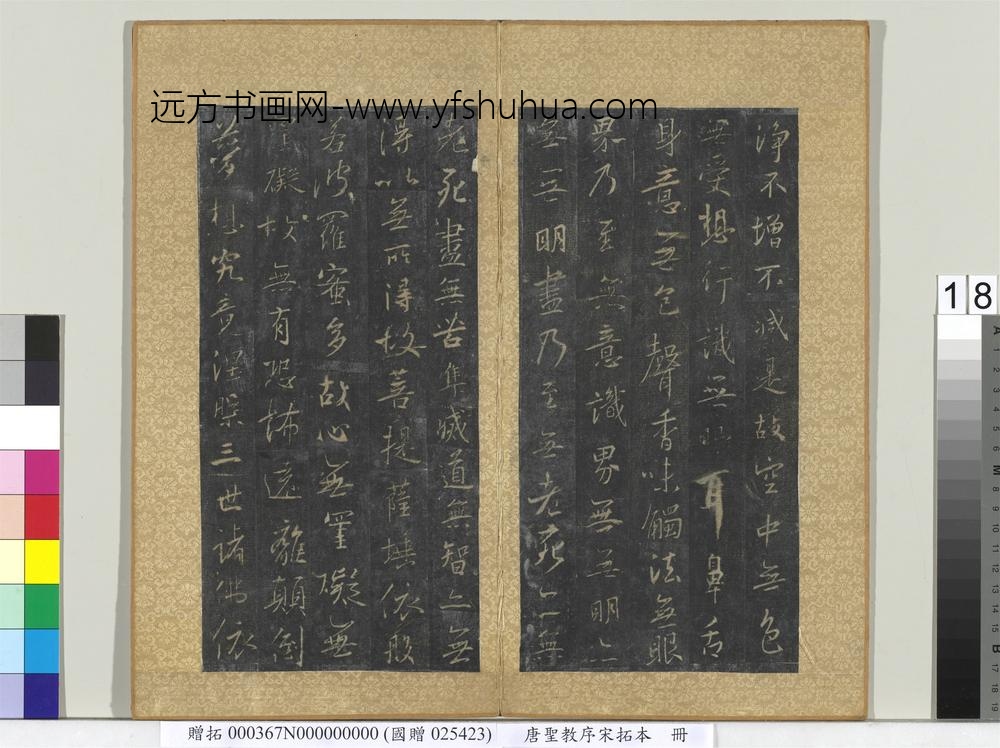 远方书画网-www.yfshuhua.com
淨不增不減是故空中無色
無受想行識無眼耳鼻舌
身意無色聲香味觸法無眼
界乃至無意識界無無明亦
無無明盡乃至無老死亦無
老死盡無苦集滅道無智亦無
得以無所得故菩提薩埵依般
若波羅蜜多故心無罣礙無
罣礙故無有恐怖遠離顛倒
夢想究竟涅槃三世諸佛依
18
贈拓 000367N000000000 (國贈 025423)
唐聖教序宋拓本 冊